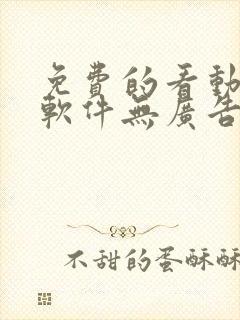 免費的看動
軟件無廣告
不甜的蛋酥酥